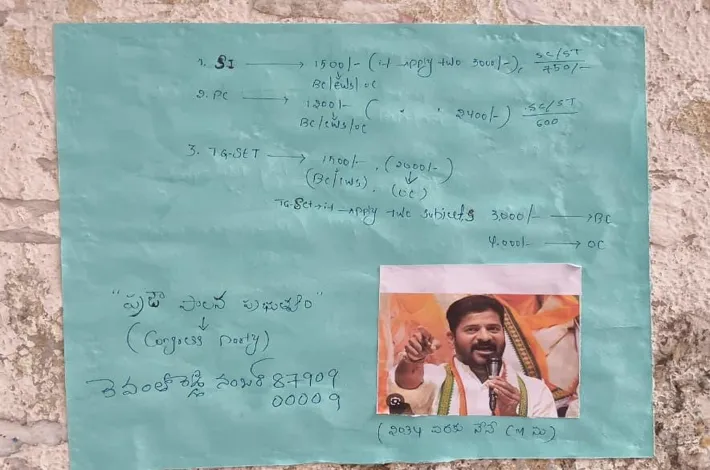 1. SI → 1500/- (if Apply two 3000/-), SC/ST 750/-
BC/EWS/OC
2. PC → 1200/- ( " " 2400/-) SC/ST 600
BC/EWS/OC
3. TG-SET → 1500/- . (2000/-)
(BC/EWS). (OC)
TG-Set → if Apply two subjects 3,000/- → BC
4,000/- → OC
"ప్రజా పాలన ప్రభుత్వం"
(Congress Party)
రేవంత్ రెడ్డి నంబర్ 87909
00009
(2034 వరకు నేనే